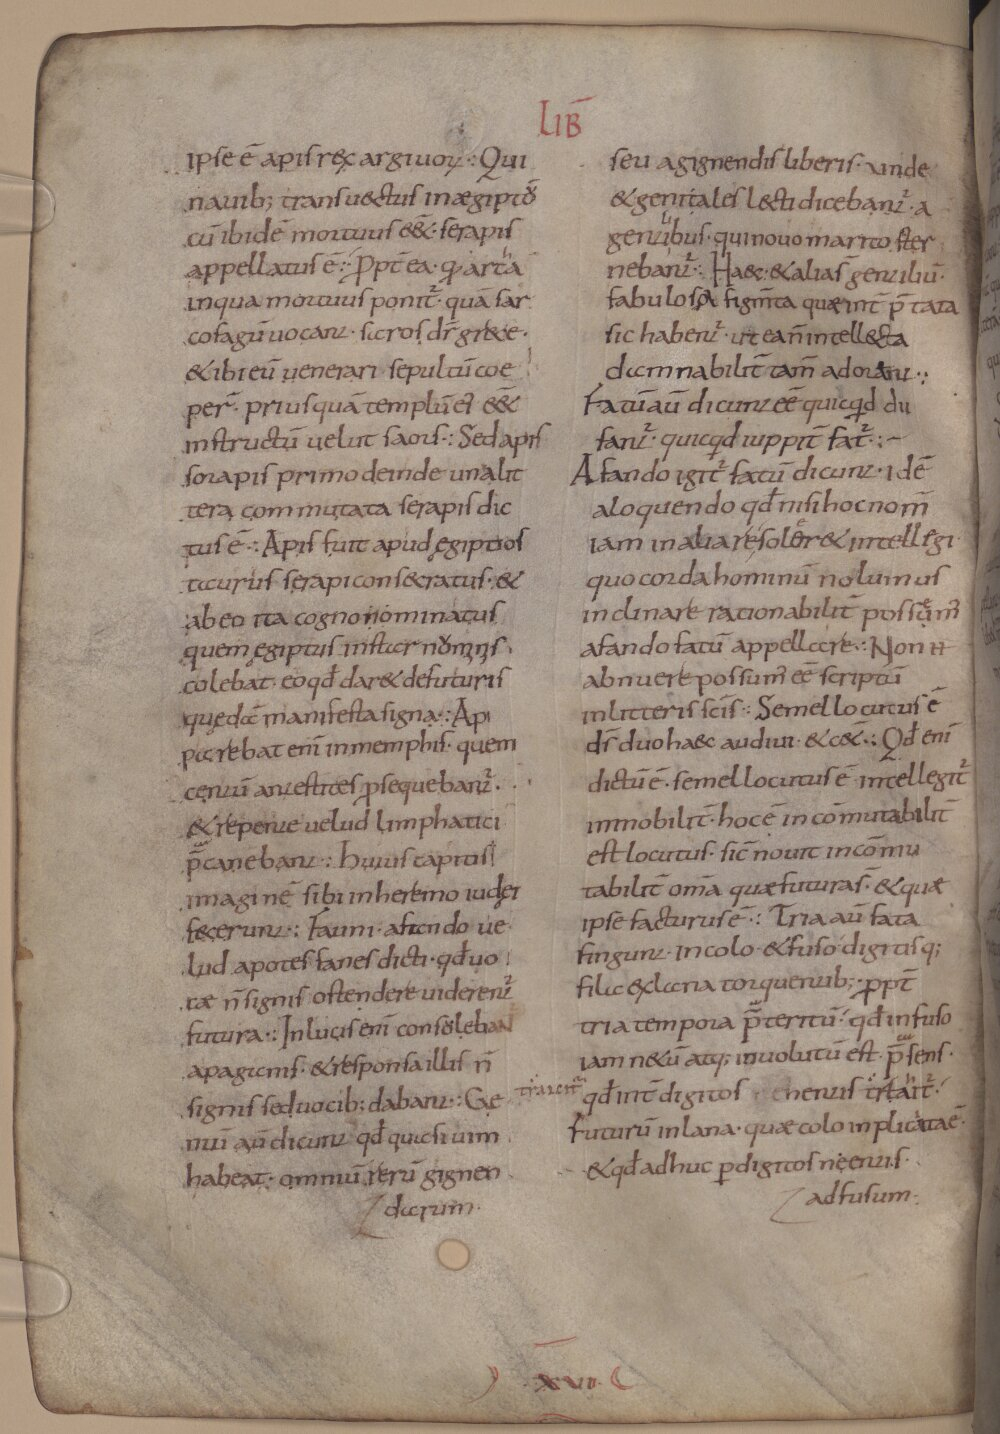 LIB̄
ipse ē apis rex argiuoꝝ :· Qui
nauib; transuectus in ægiptū
cū ibidē mortuus eēt · serapis
appellatus ē :· Ꝓpt̄ ea · qꝫ arca
in qua mortuus ponit᷑ · quā sar
cofagū uocant · sicros dr̄ grece ·
& ibi eū uenerari sepultū coe
per̄ · priusquā templū ei eēt
instructū uelut saors :· Sed apis
sorapis primo deinde una lit
tera commutata serapis dic
tus ē :· Apis fuit apud egiptios
taurus serapi consecratus · &
ab eo ita cognonominatus
quem egiptus instar numinis
colebat · eo qđ daret de futuris
quedā manifesta signa :· Ap
parebat enī in memphis · quem
centū antestites ꝓsequebant᷑ ·
& repente uelud limphatici
p̄canebant :· huius capitis
imaginē sibi in heremo iudei
fecerunt :· Fauni · a fando ue
lud apo tes fanes dicti · qđ uo
cæ n̄ signis ostendere uiderent᷑
futura :· In lucis enī consolebant
a paganis · & responsa illis n̄
signis sed uocib; dabant :· Ge
nuī aū dicunt qđ quasi uim
habeat · omniū rerū gignen
darum ·
seu a gignendis liberis · unde
& genitales lecti dicebant᷑ · a
gentibus · qui nouo marito ster
nebant᷑ :· Haec · & alias gentiliū ·
fabulosa figm̄ta quae int̄p̄tata
sic habent᷑ · ut ea n̄ intellecta
damnabilit̄ tam̄ adorant :·
Fatū aū dicunt eē quicqđ dii
fant᷑ · quicqđ iuppit̄ fat᷑ :·
A fando igit᷑ fatū dicunt · id ē
a loquendo qđ nisi hoc nom̄
iam in alia re soleret intellegi
quo corda hominū nolumus
inclinare rationabilit̄ possum᷒
a fando fatū appellare :· Non n̄
abnuere possum᷒ eē scriptū
in litteris sc̄is :· Semel locutus ē
d̄s duo haec audiui · & cet̄ :· Qđ enī
dictū ē · semel locutus ē intellegit᷑
immobilit̄ · hoc ē incōmutabilit̄
est locutus · sic̄ nouit incōmu
tabilit̄ om̄a quae futura s̄ · & quae
ipse facturus ē :· Tria aū fata
fingunt · in colo · & fuso digitisq;
fila ex lana torquentib; · ꝓpt̄
tria tempora p̄teritū · qđ in fuso
iam netū atq; inuolutū est · p̄sens ·
qđ int̄ digitos nehentis
futurū in lana · quae colo inplicata ē ·
& qđ adhuc ꝑ digitos neentis ·
ad fusum ·
xvi